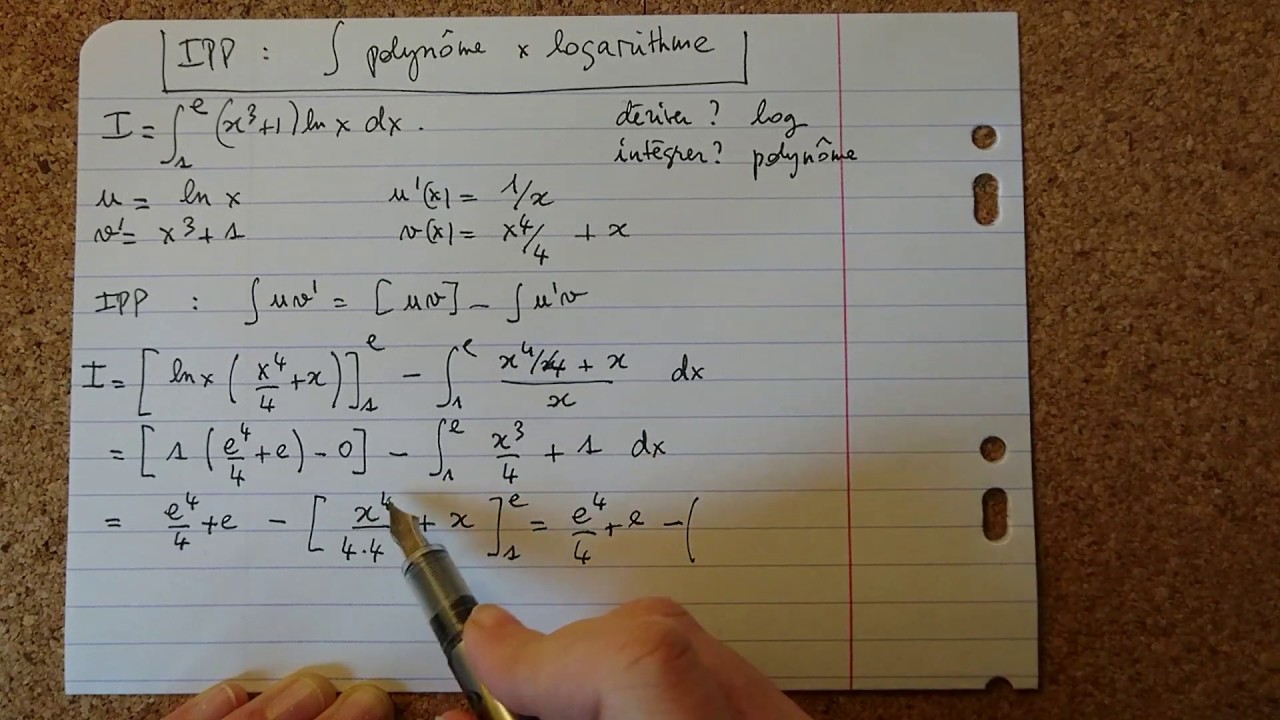 IPP : ∫ polynôme × logarithme
I = ∫₁ᵉ (x³+1) ln x dx.
dériver ? log
intégrer ? polynôme
u = ln x u'(x) = 1/x
v' = x³ + 1 v(x) = x⁴/4 + x
IPP : ∫ uv' = [uv] - ∫ u'v
I = [ln x (x⁴/4 + x)]₁ᵉ - ∫₁ᵉ (x⁴/4 + x)/x dx
= [1 (e⁴/4 + e) - 0] - ∫₁ᵉ x³/4 + 1 dx
= e⁴/4 + e - [x⁴/(4·4) + x]₁ᵉ = e⁴/4 + e - (